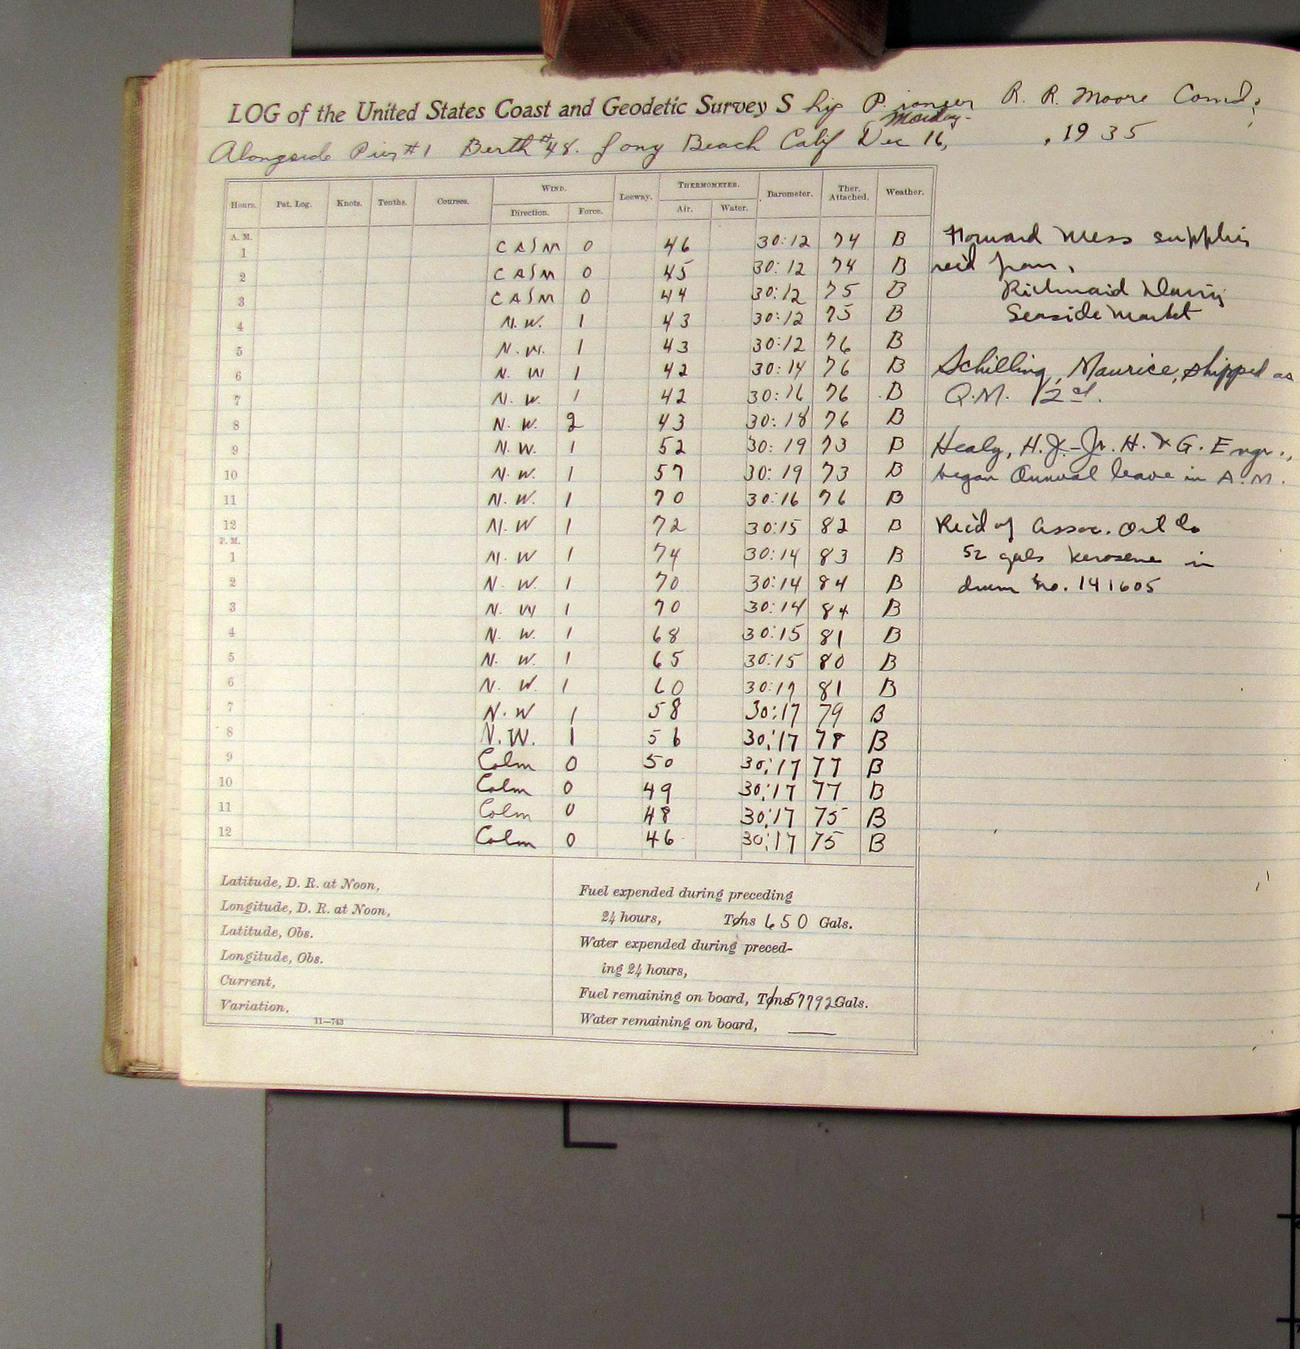 LOG of the United States Coast and Geodetic Survey Ship Pioneer R. R. Moore Comd;
Monday-
Alongside Pier #1 Berth #48. Long Beach Calif Dec 16, , 1935
Hours. Pat. Log. Knots. Tenths. Courses. WIND. Leeway. THERMOMETER. Barometer. Ther. Attached. Weather.
Direction. Force. Air. Water.
A. M.
1 CALM 0 46 30:12 74 B
2 CALM 0 45 30:12 74 B
3 CALM 0 44 30:12 75 B
4 N.W. 1 43 30:12 75 B
5 N.W. 1 43 30:12 76 B
6 N.W 1 42 30:14 76 B
7 N.W. 1 42 30:16 76 B
8 N.W. 2 43 30:18 76 B
9 N.W. 1 52 30:19 73 B
10 N.W. 1 57 30:19 73 B
11 N.W. 1 70 30:16 76 B
12 N.W 1 72 30:15 82 B
P. M.
1 N.W 1 74 30:14 83 B
2 N.W. 1 70 30:14 84 B
3 N.W 1 70 30:14 84 B
4 N.W. 1 68 30:15 81 B
5 N.W. 1 65 30:15 80 B
6 N.W. 1 60 30:17 81 B
7 N.W 1 58 30:17 79 B
8 N.W. 1 56 30:17 78 B
9 Calm 0 50 30:17 77 B
10 Calm 0 49 30:17 77 B
11 Calm 0 48 30:17 75 B
12 Calm 0 46 30:17 75 B
Forward Mess supplies
recd from,
Seaside Market
Schilling, Maurice, shipped as
Q.M. 2d.
Healy, H.J.-Jr. H. & G. Engr.,
began Annual leave in A.M.
Rec'd of Assoc. Oil Co
52 gals kerosene in
drum No. 141605
Latitude, D. R. at Noon,
Longitude, D. R. at Noon,
Latitude, Obs.
Longitude, Obs.
Current,
Variation,
11—743
Fuel expended during preceding
24 hours, Tons 650 Gals.
Water expended during preced-
ing 24 hours,
Fuel remaining on board, Tons 57792 Gals.
Water remaining on board,